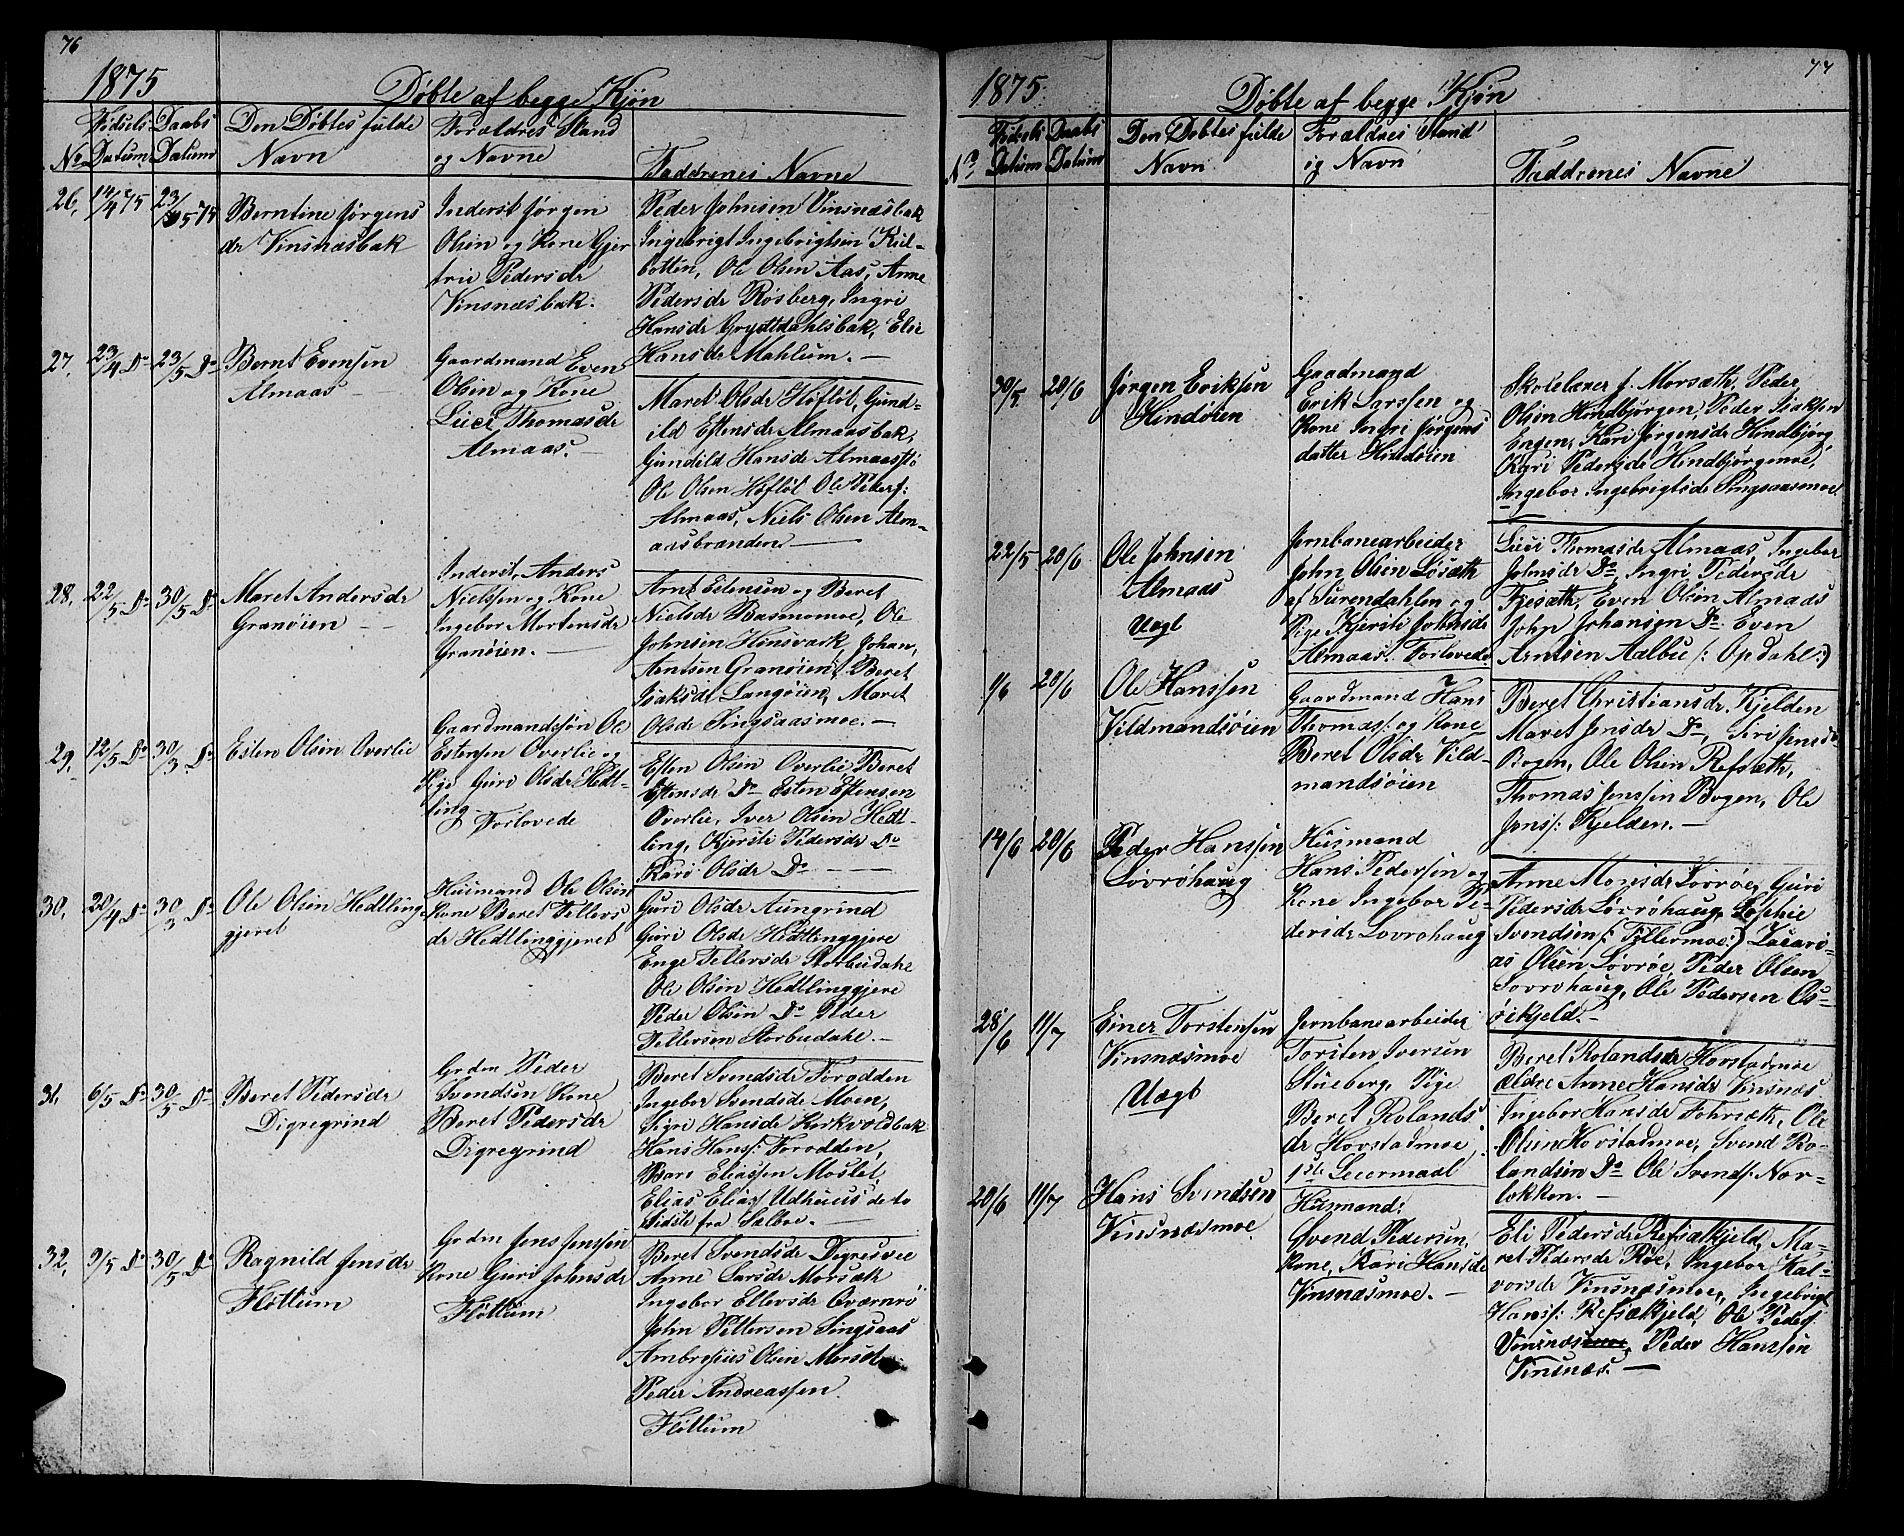 76
1875
Døbte af begge Kjøn
No
Fødsels Datum
Daabs Datum
Den Døbtes fulde Navn
Forældres Stand og Navne
Faddrenes Navne
26, 14/4 75 23/5 75
Berntine Jørgens
dr Vinsnæsbak
Inderst Jørgen
Olsen og Kone Gjer
trie Pedersdr
Vinsnæsbak.
Peder Johnsen Vinsnæsbak
Ingebrigt Ingebrigtsen Kul-
botten, Ole Olsen Aas, Anne
Pedersdr Røsberg, Ingri
Hansdr Gryttdahlsbak, Eli
Hansdr Mahlum. —
27, 23/4 Do 23/5 Do
Bernt Evensen
Almaas —
Gaardmand Even
Olsen og Kone
Luci Thomasdr
Almaas. —
Maret Olsdr Høfløt, Gund-
ild Estensdr Almaasbak,
Gunild Hansdr Almaasstø
Ole Olsen Høfløt Ole Peders:
Almaas, Niels Olsen Alm-
aasbranden —
28, 22/5 Do 30/5 Do
Maret Andersdr
Granøien —
Inderst, Anders
Nielssen og Kone
Ingebor Mortensdr
Granøien. —
Arnt Estensen og Beret
Nielsdr Basmomoe, Ole
Johnsen Hinsvark, Johan,
Arntsen Granøien, Beret
Isaksdr Langøien, Maret
Olsdr Singsaasmoe. —
29, 12/5 Do 30/3 Do
Esten Olsen Overlie
Gaardmandssøn Ole
Estensen Overlie og
Pige Guri Olsdr Hedt-
ling
Forlovede
Esten Olsen Overlie Beret
Estensdr Do Esten Estensen
Overlie, Iver Olsen Hedt-
ling, Kjersti Pedersdr Do
Kari Olsdr Do —
30, 20/4 Do 30/3 Do
Ole Olsen Hedtling
gjeret
Huusmand Ole Olsen
Kone Beret Tellers
dr Hedtlinggjeret
Guri Olsdr Aungrind
Guri Olsdr Hedtlinggjere
Enge Tellersdr Storbudahl
Ole Olsen Hedtlinggjere
Peder Olsen Do Peder
Tellersen Storbudahl. —
31, 6/5 Do 30/5 Do
Beret Pedersdr
Digregrind
Grdm Peder
Svendsen Kone
Beret Pedersdr
Digregrind
Beret Svendsdr Forodden
Ingebor Svendsdr Moen,
Sigri Hansdr Kirkvoldbak
Hans Hans: Forodden,
Baro Eliassen Mostet,
Elias Elias Udhuus de to
sidste fra Sælbo. —
32, 9/5 Do 30/5 Do
Ragnild Jensdr
Fløttum
Grdm Jens Jenssen
Kone Guri Johnsdr
Fløttum
Beret Svendsdr Digresvee
Anne Larsdr Morsæt
Ingebor Ellevsdr Qværnrø
John Pettersen Singsaas
Ambrosius Olsen Morsæt
Peder Andreassen
Fløttum
77
1875
Døbte af begge Kjøn
No
Fødsels Datum
Daabs Datum
Den Døbtes fulde Navn
Forældres Stand og Navn
Faddrenes Navne
30/5 20/6
Jørgen Eriksen
Hindøien
Gaadmand
Erik Larssen og
Kone Ingri Jørgens
datter Hindøien
Skolelærer f. Morsæth, Peder
Olsen Hindbjørgen, Peder Isaksen
Engen, Kari Jørgensdr Hindbjørg
Kari Pedersdr Hindbjørgmoe,
Ingebor Ingebrigtsdr Singsaasmoe
22/5 20/6
Ole Johnsen
Almaas
Uægt
Jernbanearbeider
John Olsen Løsæth
af Surendahlen og
Pige Kjersti Johnsdr
Almaas. Forlovede
Luci Thomasdr Almaas, Ingebor
Johnsdr Do, Ingri Pedersdr
Fjesæth, Even Olsen Almaas
John Johansen Do Even
Arntsen Aalbu /: Opdahl:)
1/6 20/6
Ole Hanssen
Vildmandsøien
Gaardmand Hans
Thomas: og Kone
Beret Olsdr Vild-
mandsøien
Beret Christiansdr Kjelden
Maret Jensdr Do, Siri Jensdr
Bogen, Ole Olsen Refsæth,
Thomas Jenssen Bogen, Ole
Jens: Kjelden. —
14/6 20/6
Peder Hanssen
Løvrøhaug
Huusmand
Hans Pederssen og
Kone Ingebor Pe-
dersdr Løvrøhaug
Anne Monsdr Løvrøe, Guri
Pedersdr Løvrøhaug, Sophie
Svendsen (: Tellermoe:) Zacari-
as Olsen Løvrøe, Peder Olsen
Løvrøhaug, Ole Pedersen Os-
øikjeld. —
28/6 11/7
Einer Torstensen
Vinsnæsmoe
Uægt
Jernbanearbeider
Torsten Iversen
Stueberg, Pige
Beret Rolands
dr Hovstadmoe
1ste Leiermaal
Beret Rolandsdr Hovstadmoe
ældre Anne Hansdr Vinsnæs
Ingebor Hansdr Fohrsæth, Ole
Olsen Hovstadmoe, Svend Ro-
landsen Do Ole Svends: Nor-
løkken. —
20/6 11/7
Hans Svendsen
Vinsnæsmoe
Husmand:
Svend Pedersen,
Kone, Kari Hansdr
Vinsnæsmoe. —
Eli Pedersdr Refsætkjeld, Ma-
ret Pedersdr Røe, Ingebor Hal-
vorsdr Vinsnæsmoe, Ingebrigt
Hans: Refsætkjeld, Ole Peders
Vinsnæsmoe, Peder Hanssen
Vinsnæs. —